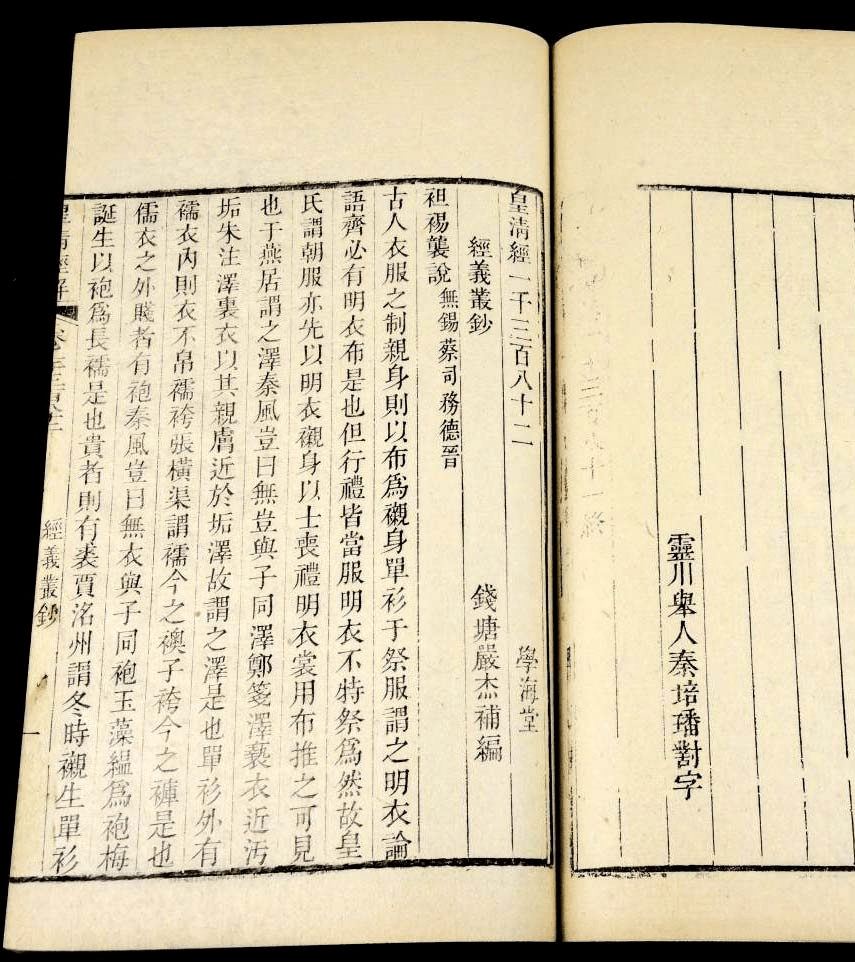 靈川舉人秦培璠對字
皇清經一千三百八十二 學海堂
經義叢鈔 錢塘嚴杰補編
袒裼襲說 無錫蔡司務德晉
古人衣服之制親身則以布為襯身單衫于祭服謂之明衣論
語齊必有明衣布是也但行禮皆當服明衣不特祭為然故皇
氏謂朝服亦先以明衣襯身以士喪禮明衣裳用布推之可見
也于燕居謂之澤秦風豈曰無豈與子同澤鄭箋澤褻衣近汚
垢朱注澤裏衣以其親膚近於垢澤故謂之澤是也單衫外有
襦衣內則衣不帛襦袴張橫渠謂襦今之襖子袴今之褲是也
儒衣之外賤者有袍秦風豈曰無衣與子同袍玉藻縕為袍梅
誕生以袍為長襦是也貴者則有裘賈洺州謂冬時襯生單衫
皇清經解 經義叢鈔 一